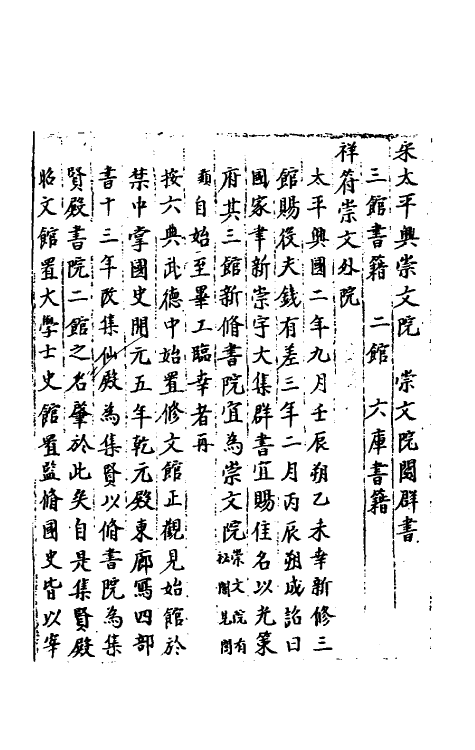 宋太平興崇文院　崇文院閱群書
三館書籍　二館　六庫書籍
祥符崇文外院
太平興國二年九月壬辰朔乙未幸新修三
館賜役夫錢有差三年二月丙辰朔成詔曰
國家聿新崇宇大集群書宜賜佳名以光策
府其三館新脩書院宜為崇文院崇文院有
閣見閣
類自始至畢工臨幸者再
按六典武德中始置修文館正觀見始館於
禁中掌國史開元五年乾元殿東廊寫四部
書十三年改集仙殿為集賢以脩書院為集
賢殿書院二館之名肇於此矣自是集賢殿
昭文館置大學士史館置監脩國史皆以宰